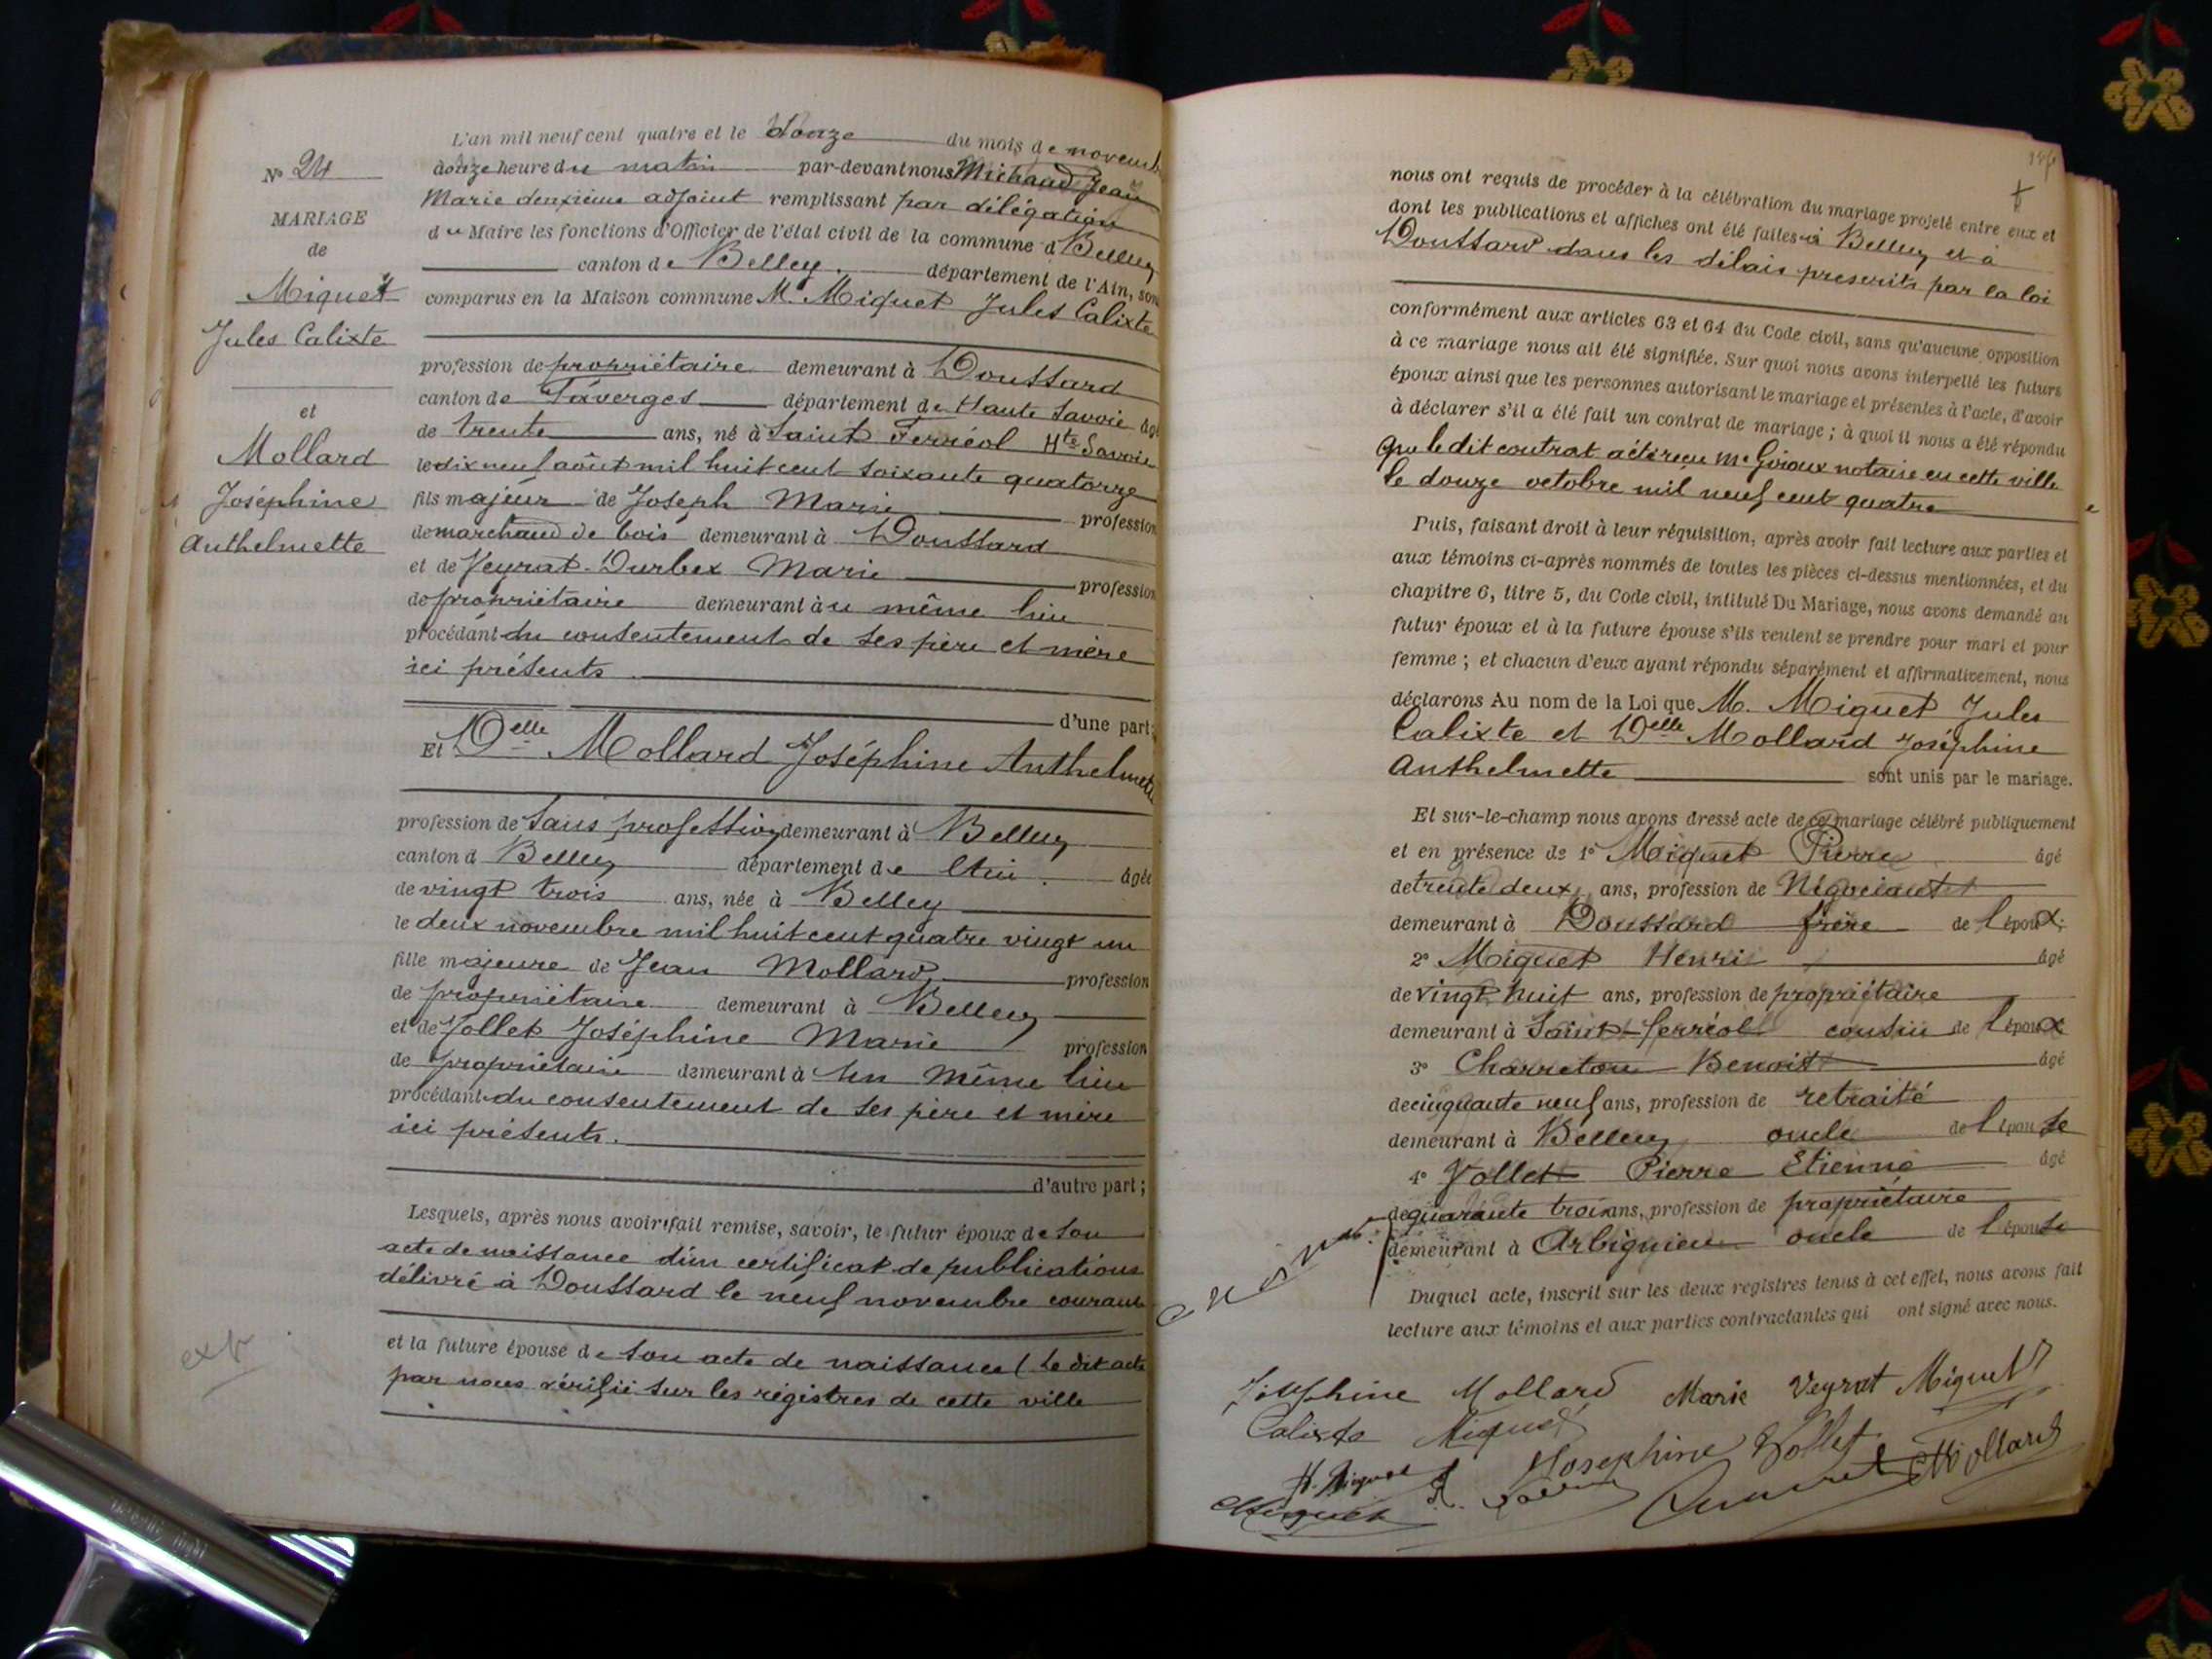 L'an mil neuf cent quatre et le douze du mois de novembre
N° 24
onze heure du matin par-devant nous Michaud Jean
Marie deuxième adjoint remplissant par délégation
du Maire les fonctions d'Officier de l'état civil de la commune d Belley
canton de Belley. département de l'Ain, son
comparus en la Maison commune M. Miquet Jules Calixte
MARIAGE
de
Miquet
Jules Calixte
et
Mollard
Joséphine
Anthelmette
profession de propriétaire demeurant à Doussard
canton de Faverges département de Haute Savoie âgé
de trente ans, né à Saint Ferréol Hte Savoie
le dix neuf août mil huit cent soixante quatorze
fils majeur de Joseph Marie profession
de marchand de bois demeurant à Doussard
et de Veyrat-Durbex Marie profession
de propriétaire demeurant àu même lieu
procédant du consentement de ses père et mère
ici présents.
d'une part;
Et Delle Mollard Joséphine Anthelmette
profession de sans profession demeurant à Belley
canton d Belley département de l'Ain. âgée
de vingt trois ans, née à Belley
le deux novembre mil huit cent quatre vingt un
fille majeure de Jean Mollard profession
de propriétaire demeurant à Belley
et de Vollet Joséphine Marie profession
de propriétaire demeurant à au même lieu
procédant du consentement de ses père et mère
ici présents.
d'autre part;
Lesquels, après nous avoir fait remise, savoir, le futur époux de son
acte de naissance d'un certificat de publications
délivré à Doussard le neuf novembre courant
et la future épouse de son acte de naissance (le dit acte
par nous vérifié sur les régistres de cette ville
nous ont requis de procéder à la célébration du mariage projeté entre eux et
dont les publications et affiches ont été faites à Belley et à
Doussard dans les délais prescrits par la loi
conformément aux articles 63 et 64 du Code civil, sans qu'aucune opposition
à ce mariage nous ait été signifiée. Sur quoi nous avons interpellé les futurs
époux ainsi que les personnes autorisant le mariage et présentes à l'acte, d'avoir
à déclarer s'il a été fait un contrat de mariage; à quoi il nous a été répondu
que le dit contrat a été reçu Me Giroux notaire en cette ville
le douze octobre mil neuf cent quatre
Puis, faisant droit à leur réquisition, après avoir fait lecture aux parties et
aux témoins ci-après nommés de toutes les pièces ci-dessus mentionnées, et du
chapitre 6, titre 5, du Code civil, intitulé Du Mariage, nous avons demandé au
futur époux et à la future épouse s'ils veulent se prendre pour mari et pour
femme; et chacun d'eux ayant répondu séparément et affirmativement, nous
déclarons Au nom de la Loi que M. Miquet Jules
Calixte et Delle Mollard Joséphine
Anthelmette sont unis par le mariage.
Et sur-le-champ nous avons dressé acte de ce mariage célébré publiquement
et en présence de 1° Miquet Pierre âgé
de trente deux ans, profession de Négociant
demeurant à Doussard frère de l'époux;
2° Miquet Henri âgé
de vingt huit ans, profession de propriétaire
demeurant à Saint-ferréol cousin de l'époux
3° Charreton Benoist âgé
de cinquante neuf ans, profession de retraité
demeurant à Belley oncle de l'épouse
4° Vollet Pierre Etienne âgé
de quarante trois ans, profession de propriétaire
demeurant à Arbignieu oncle de l'épouse
Duquel acte, inscrit sur les deux registres tenus à cet effet, nous avons fait
lecture aux témoins et aux parties contractantes qui ont signé avec nous.
Joséphine Mollard Marie Veyrat Miquet
Calixte Miquet
Josephine Vollet
H. Miquet
Mollard
Miquet